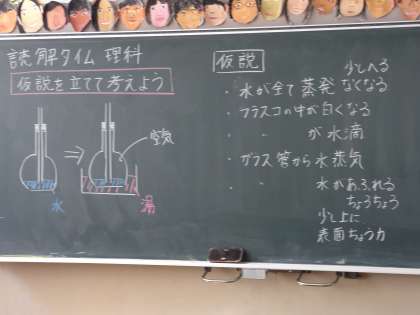 読解タイム 理科
仮説を立てて考えよう
空気
水
湯
仮説
少しへる
・水が全て蒸発 なくなる
・フラスコの中が白くなる
・ 〃 が水滴
・ガラス管から水蒸気
・ 〃 水があふれる
ちょろちょろ
少し上に
表面ちょう力